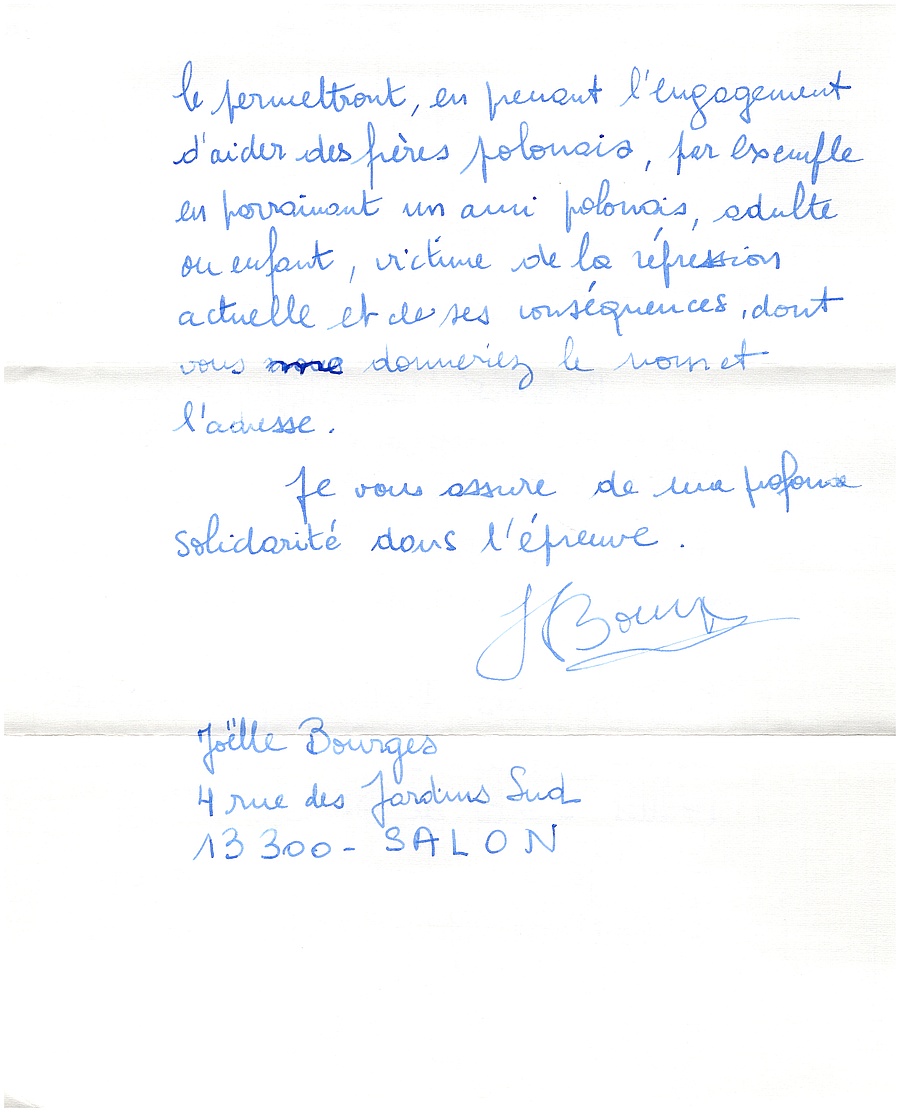 le permettront, en prenant l'engagement
d'aider des frères polonais, par exemple
en parrainant un ami polonais, adulte
ou enfant, victime de la répression
actuelle et de ses conséquences, dont
vous donneriez le nom et
l'adresse.
Je vous assure de ma profonde
solidarité dans l'épreuve.
JBourges
Joëlle Bourges
4 rue des Jardins Sud
13300 - SALON